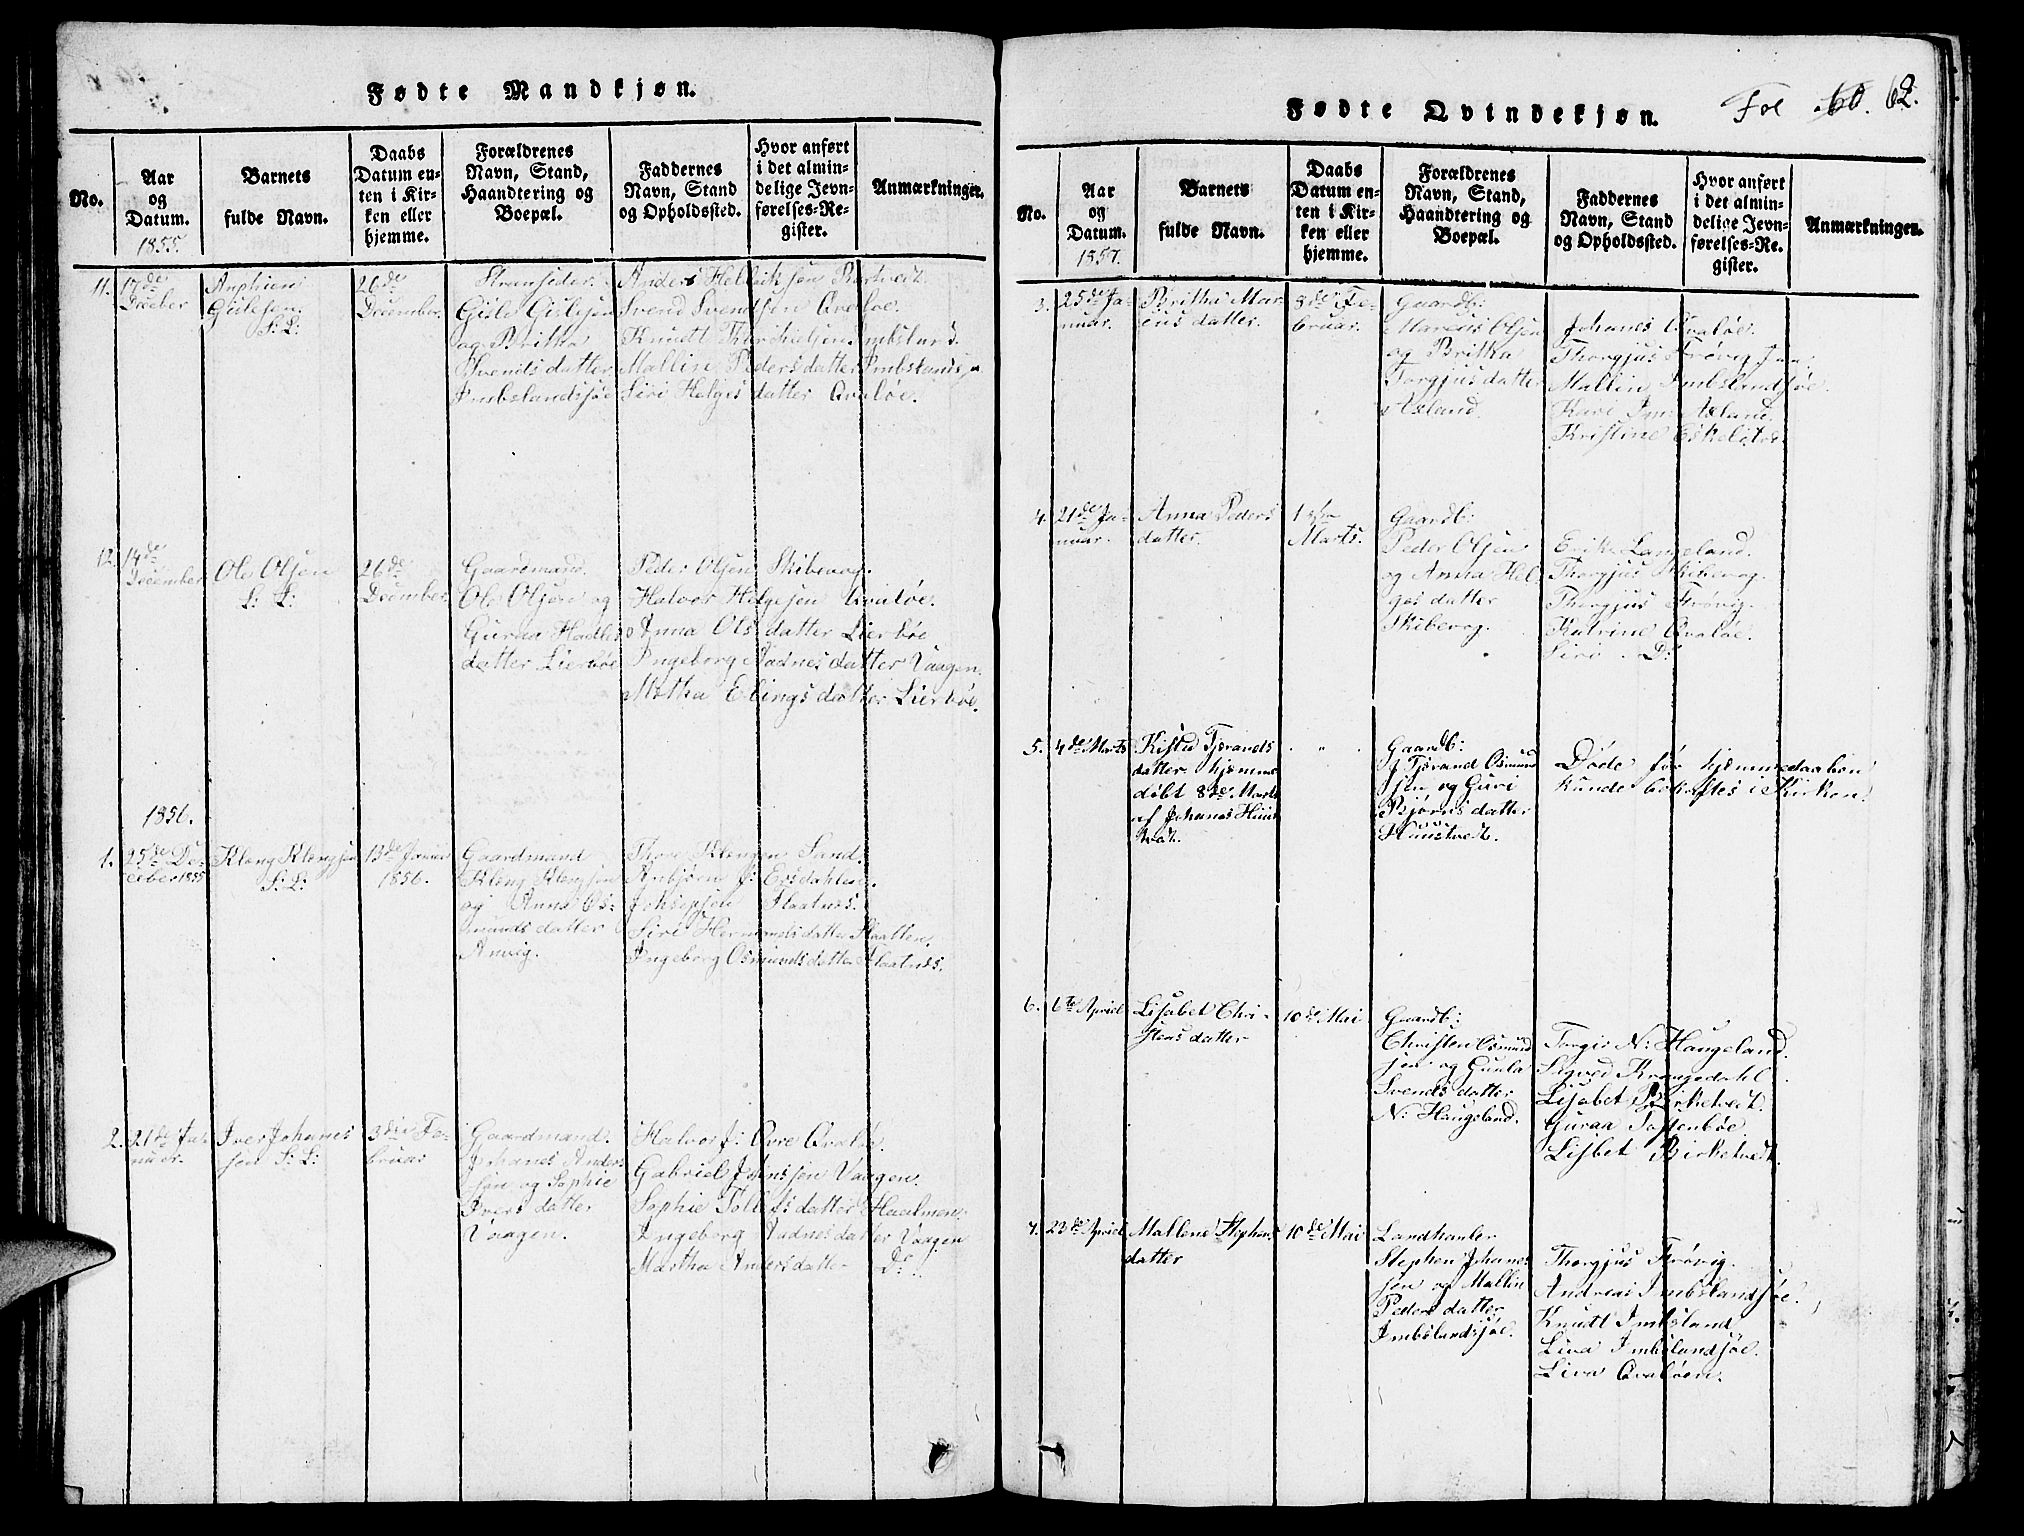 Fødte Mandkjøn.
No.
Aar
og
Datum.
1855.
Barnets
fulde Navn.
Daabs
Datum en-
ten i Kir-
ken eller
hjemme.
Forældrenes
Navn, Stand,
Haandtering og
Boepæl.
Faddernes
Navn, Stand
og Opholdssted.
Hvor anført
i det almin-
delige Jevn-
førelses-Re-
gister.
Anmærkninger.
11.
17de
Dceber
Gislesen.
S: L:
26de
December.
Gisle Gislesen
og Britha
Svendsdatter
Imbslandsjøe
Anders Helliksen Birkvedt.
Svend Svendsen Qvaløe.
Knudt Thorkielsen Imbsland.
Mallin Pedersdatter Imbslandsjø
Siri Helgesdatter Qvaløe.
12.
14de
December
Ole Olsen
S: L:
26de
December.
Gaardmand.
Ole Olsen og
Gurna Hadles
datter Lierbøe
Peder Olsen Skibevog.
Halvor Helgesen Qvaløe.
Anna Olsdatter Lierbøe
Ingeborg Aadnesdatter Vaagen.
Martha Elingsdatter Lierbøe.
1856.
1.
25de De-
ceber 1855
Kleng Klengsen
S: L:
13de Januar
1856.
Gaardmand
Kleng Klengsen
og Anna Os-
mundsdatter
Anvig.
Thore Klengsen Sand.
Anbjørn J: Ersdahlen.
Johsepsen Flaatnes.
Siri Hermundsdatter Flaatten.
Ingeborg Osmundsdatter Flaatnes.
2.
21de Ja-
nuar.
Iver Johanes
sen S: L:
3die Fe-
bruar
Gaardmand.
Johanes Anders
sen og Sophie
Iversdatter
Vaagen.
Halvor J: Øvre Qvaløe.
Gabriel Johnssen Vaagen.
Sophie Tollefsdatter Haalmen.
Ingeborg Aadnesdatter Vaagen
Martha Andersdatter Do.
Fødte Qvindekjøn.
Fol 60. 62.
No.
Aar
og
Datum.
1857.
Barnets
fulde Navn.
Daabs
Datum en-
ten i Kir-
ken eller
hjemme.
Forældrenes
Navn, Stand,
Haandtering og
Boepæl.
Faddernes
Navn, Stand
og Opholdssted.
Hvor anført
i det almin-
delige Jevn-
førelses-Re-
gister.
Anmærkninger.
3.
25de Ja-
nuar.
Britha Mar-
cusdatter.
8de Fe-
bruar.
Gaardb:
Marcus Olsen
og Britha
Torgjusdatter
Axland.
Johanes Qvaløe.
Thorgjus Frøvig
Mallin Imbslandsjøe.
Kari Axland
Kristine
4.
21de Ja-
nuar.
Anna Peders
datter.
1ste
Marts.
Gaardb:
Peder Olsen
og Anna Hel-
gesdatter
Skibevog.
Erik Langeland.
Thorgjus Skibevog.
Thorgjus Frøvig.
Katrine Qvaløe.
Siri Do
5.
4de Marts
Kisti Tjerands
datter. hjemme
døbt 8de Marts
af Johanes Hiins
vedt.
Gaardb:
Tjerand Osmund
sen og Guri
Bjørnsdatter
Hiinsvedt.
Døde før hjemmedaaben
kunde bekræftes i Kirken.
6.
6te Apriel
Lisabet Chri-
stensdatter
10de Mai
Gaardb:
Christen Osmund
sen og Gunla
Svendsdatter
N: Haugeland.
Torgir N: Haugeland.
Sigved Krongedahl
Lisabet Birketvedt.
Guraa Toftenbøe
Lisbet Birketvedt
7.
23de Apriel
Mallene Stephens
datter
10de Mai
Landhanler
Stephen Johanes
sen og Mallin
Pedersdatter
Imbslandsjøe.
Thorgjus Frøvig.
Andreas Imbslandsjøe.
Knudt Imbsland
Liva Imbslandsjøe.
Liva Qvaløen.